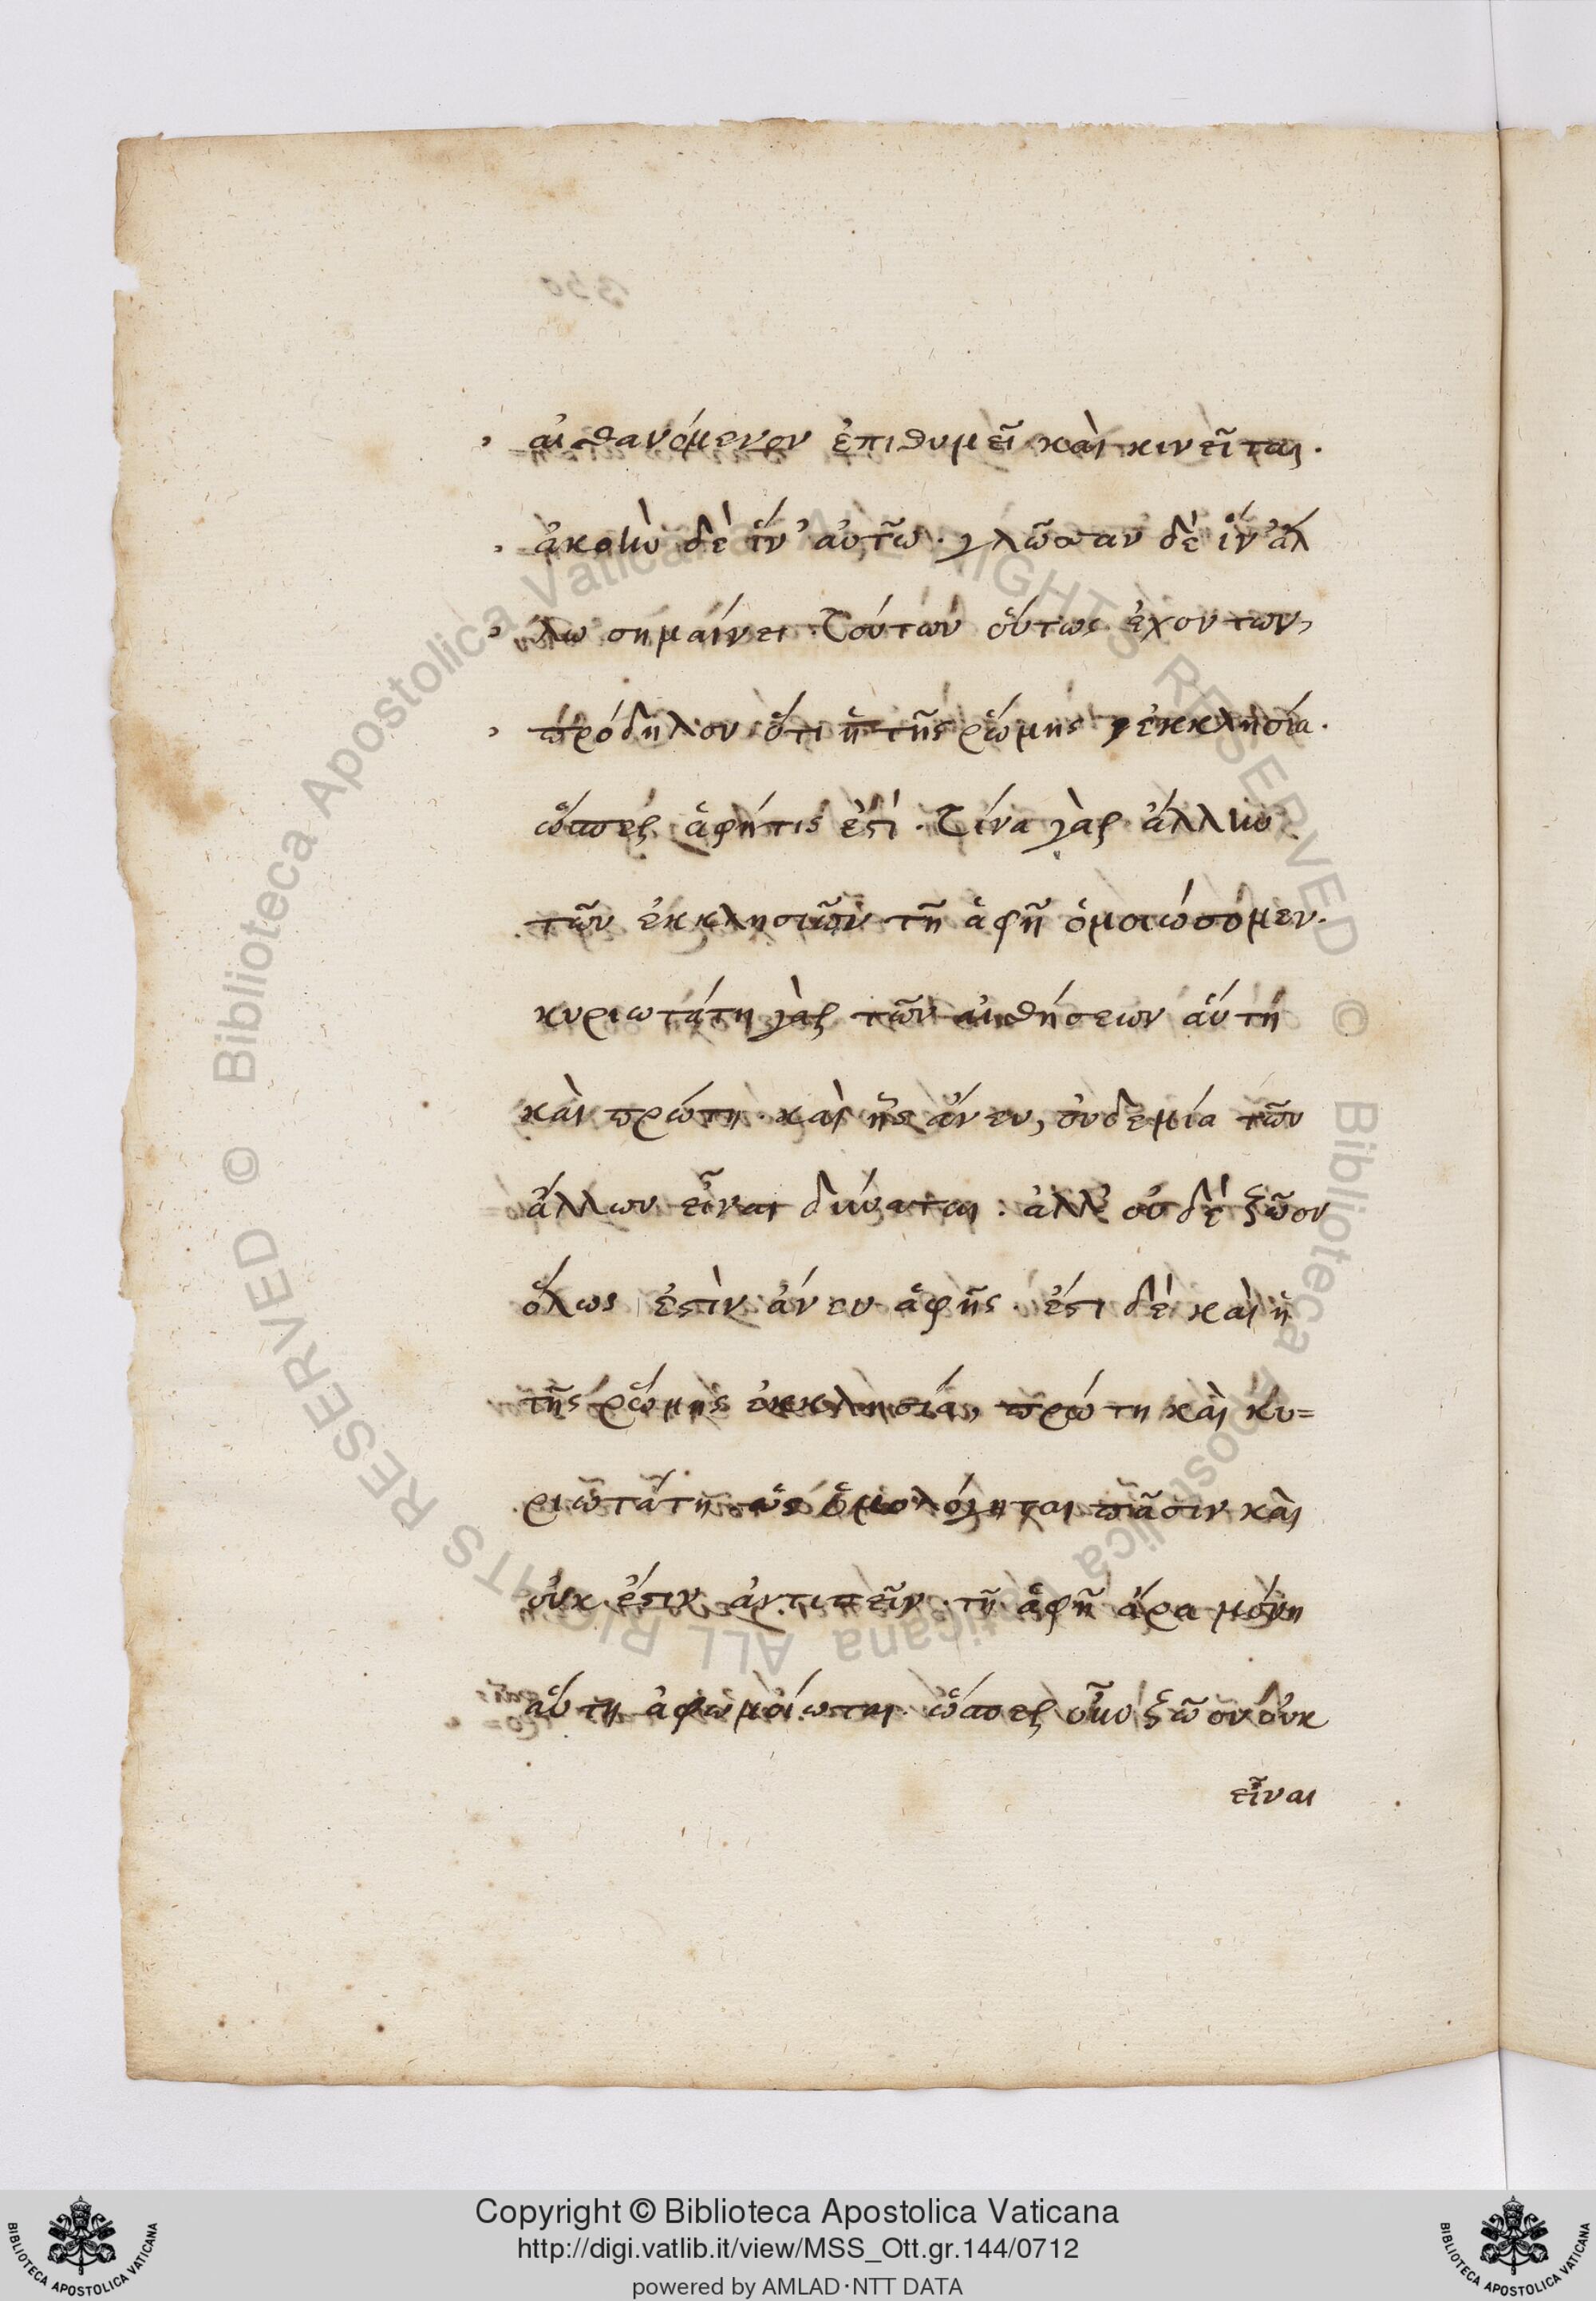 αἰσθανόμενον ἐπιθυμεῖ καὶ κινεῖται.
ἀκοὴν δὲ ἵν' αὐτῶ. γλῶσσαν δὲ ἵν' ἄλ
λω σημαίνει. Τούτων οὕτως ἐχόντων,
πρόδηλον ὅτι ἡ τῆς ῥώμης ἐκκλησία.
ὥσπερ ἁφή τίς ἐστί. Τίνα γὰρ ἄλλην
τῶν ἐκκλησιῶν τῆ ἁφῆ ὁμοιώσομεν.
κυριωτάτη γὰρ τῶν αἰσθήσεων αὕτη
καὶ πρώτη. καὶ ἧς ἄνευ, οὐδεμία τῶν
ἄλλων εἶναι δύναται. ἀλλ' οὐδὲ ζῶον
ὅλως ἐστὶν ἄνευ ἁφῆς. ἔστι δὲ καὶ ἡ
τῆς ῥώμης ἐκκλησία, πρώτη καὶ κυ=
ριωτάτη. ὡς ὁμολόγηται πᾶσιν καὶ
οὐκ ἔστιν ἀντιπεῖν. τῆ ἁφῆ ἄρα μόνη
αὕτη ἀφωμοίωται. ὥσπερ οὖν ζῶον οὐκ
εἶναι
Copyright © Biblioteca Apostolica Vaticana
http://digi.vatlib.it/view/MSS_Ott.gr.144/0712
powered by AMLAD·NTT DATA
BIBLIOTECA APOSTOLICA VATICANA
BIBLIOTECA APOSTOLICA VATICANA
© Biblioteca Apostolica Vaticana ALL RIGHTS RESERVED © Biblioteca Apostolica Vaticana ALL RIGHTS RESERVED